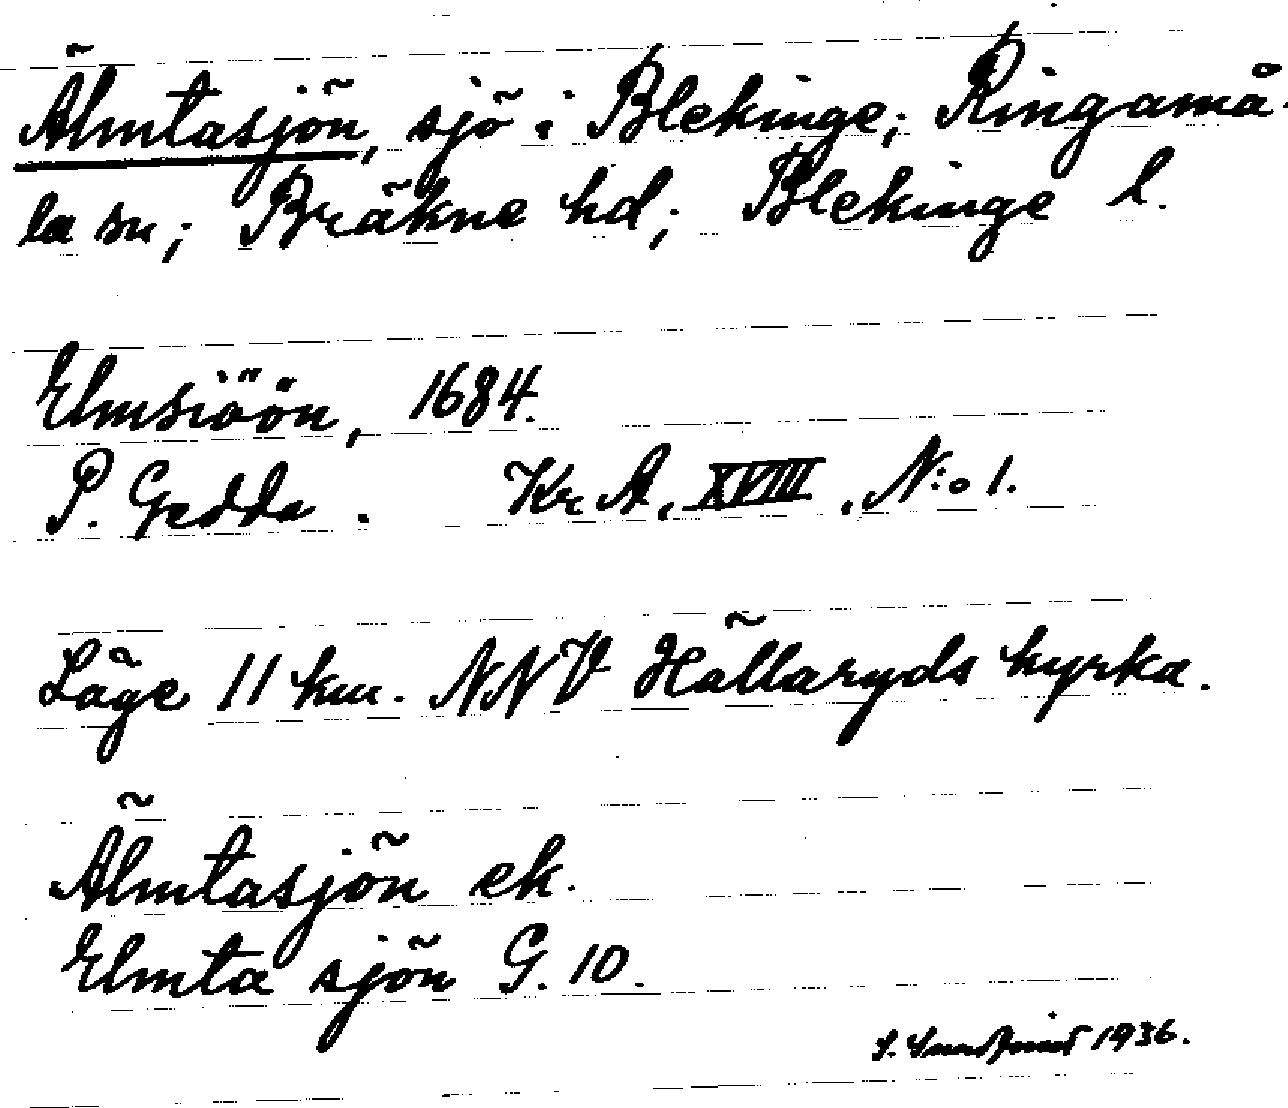 Älmtasjön, sjö i Blekinge; Ringamå-
la sn; Bräkne hd; Blekinge l.
Elmsiöön, 1684.
P. Gedda. Kr A, XVIII, N:o 1.
Läge 11 km. NNV Hällaryds kyrka.
Älmtasjön ek.
Elmta sjön G. 10.
1936.